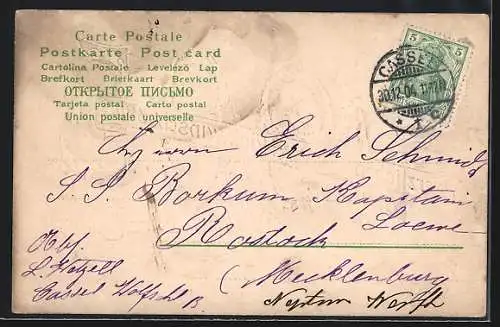 Carte Postale
Postkarte - Post card
Cartolina Postale - Levelező Lap
Brefkort Brierkaart Brevkort
ОТКРЫТОЕ ПИСЬМО
Tarjeta postal - Carto postal
Union postale universelle
5 5
CASSEL
30.12.04. 11-12 N
* 1 C
Herrn Erich Schmidt
S. S. Borkum Kapitain
Loewe
Rostock
(Mecklenburg
Neptun Werft
Abs.
Cassel